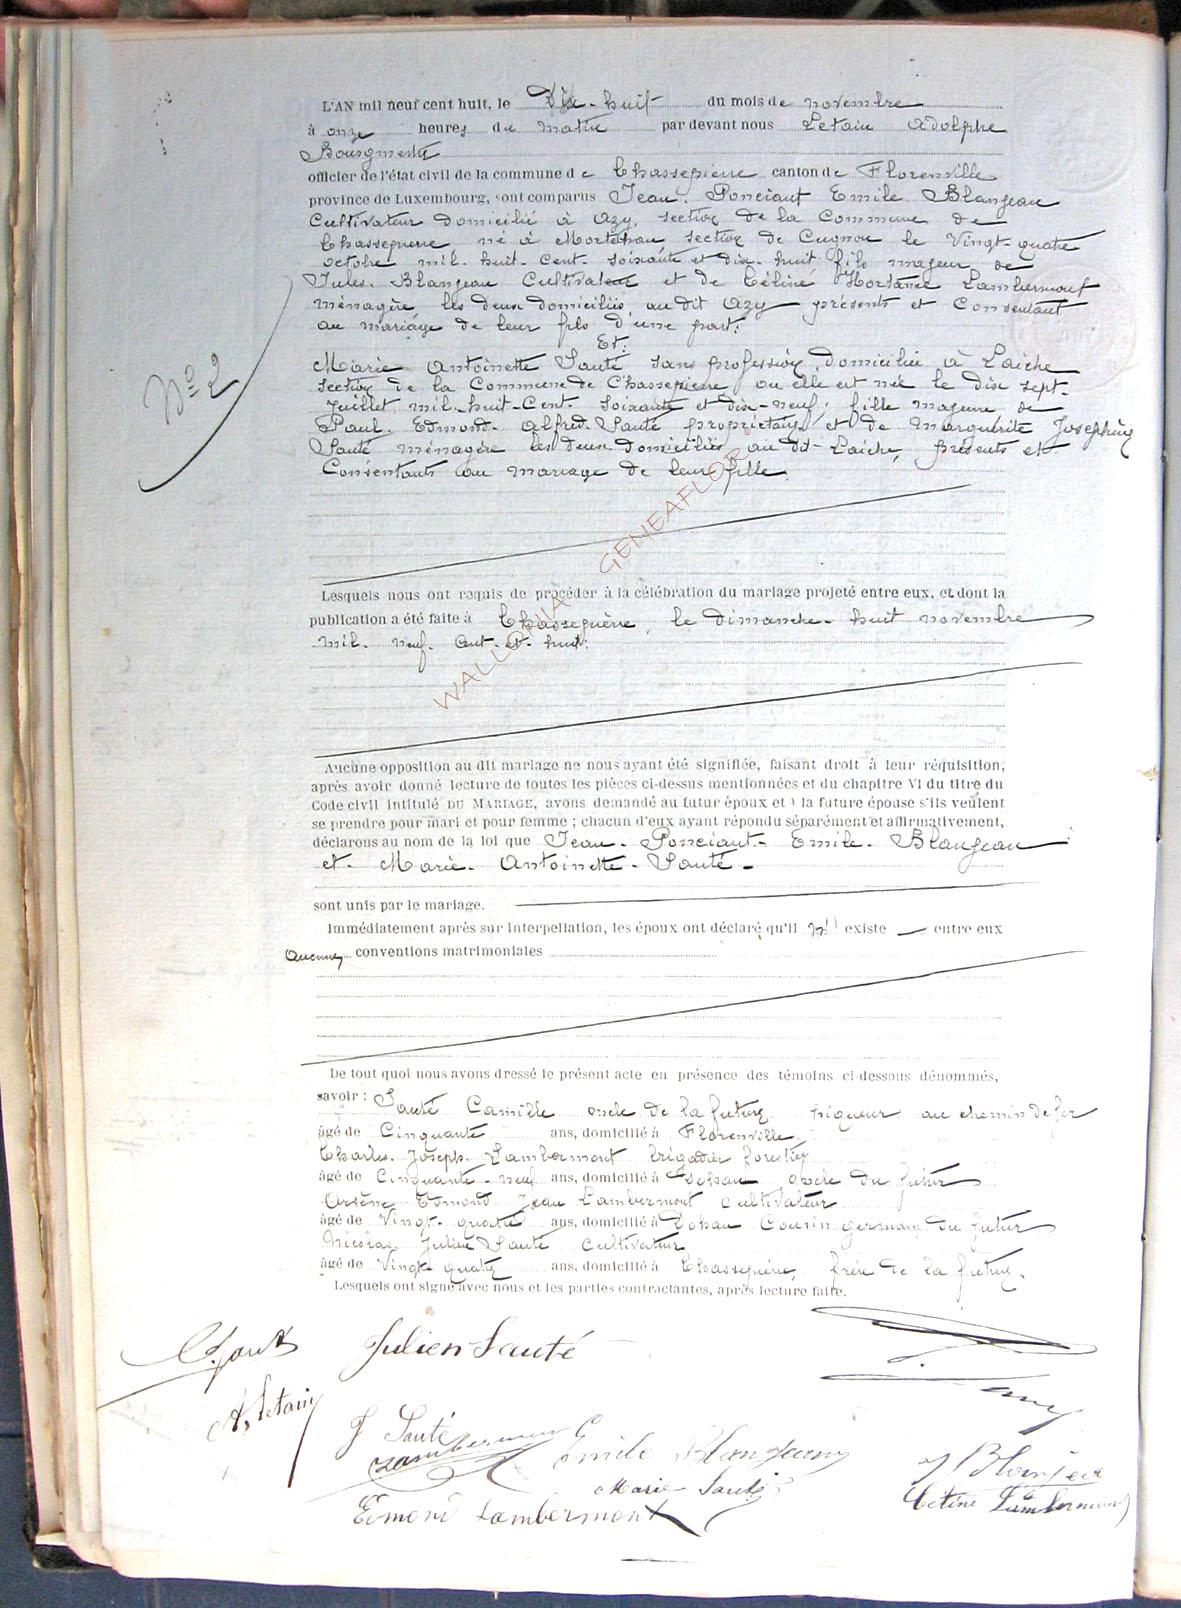 L'AN mil neuf cent huit, le Dix-huit du mois de novembre
à onze heures du matin par devant nous Letain Adolphe
Bourgmestre
officier de l'état civil de la commune de Chassepierre canton de Florenville
province de Luxembourg, sont comparus Jean. Ponciant Emile Blanjean
Cultivateur domicilié à Azy, section de la Commune de
Chassepierre né à Mortehan section de Cugnon le Vingt-quatre
octobre mil-huit-Cent-soixante et dix-huit fils majeur de
Jules-Blanjean Cultivateur et de Céline Hortance Lambermont
ménagère les deux domiciliés au dit Azy présents et Consentant
au mariage de leur fils d'une part:
Et:
Marie Antoinette Sauté sans profession, domiciliée à Laiche
section de la Commune de Chassepierre ou elle est née le dix sept
Juillet mil-huit-Cent-Soixante et dix-neuf, fille majeure de
Paul. Edmond-Alfred-Sauté propriétaire et de Marguérite Josephine
Sauté ménagère les deux domiciliés au dit-Laiche, présents et
Consentants au mariage de leur fille.
No 2
Lesquels nous ont requis de procéder à la célébration du mariage projeté entre eux, et dont la
publication a été faite à Chassepierre, le dimanche-huit novembre
mil-neuf-cent-et-huit.
WALLONIA GENEAFLOR
Aucune opposition au dit mariage ne nous ayant été signifiée, faisant droit à leur réquisition,
après avoir donné lecture de toutes les pièces ci-dessus mentionnées et du chapitre VI du titre du
Code civil intitulé DU MARIAGE, avons demandé au futur époux et à la future épouse s'ils veulent
se prendre pour mari et pour femme ; chacun d'eux ayant répondu séparément et affirmativement,
déclarons au nom de la loi que Jean-Ponciant-Emile-Blanjean
et-Marie-Antoinette-Sauté-
sont unis par le mariage.
Immédiatement après sur interpellation, les époux ont déclaré qu'il n' existe — entre eux
aucune conventions matrimoniales
De tout quoi nous avons dressé le présent acte en présence des témoins ci-dessous dénommés,
savoir : Sauté Camille oncle de la future piqueur au chemin de fer
âgé de Cinquante ans, domicilié à Florenville
Charles-Joseph-Lambermont brigadier forestier
âgé de Cinquante-neuf ans, domicilié à Dohan oncle du futur
Arsène Edmond Jean Lambermont cultivateur
âgé de Vingt-quatre ans, domicilié à Dohan Cousin germain du futur
Nicolas Julien Sauté cultivateur
âgé de Vingt quatre ans, domicilié à Chassepierre, frère de la future.
Lesquels ont signé avec nous et les parties contractantes, après lecture faite.
Julien Sauté
A. Letain
J Sauté
Lambermont
Emile Blanjean
J Blanjean
Marie Sauté
Céline Lambermont
Edmond Lambermont